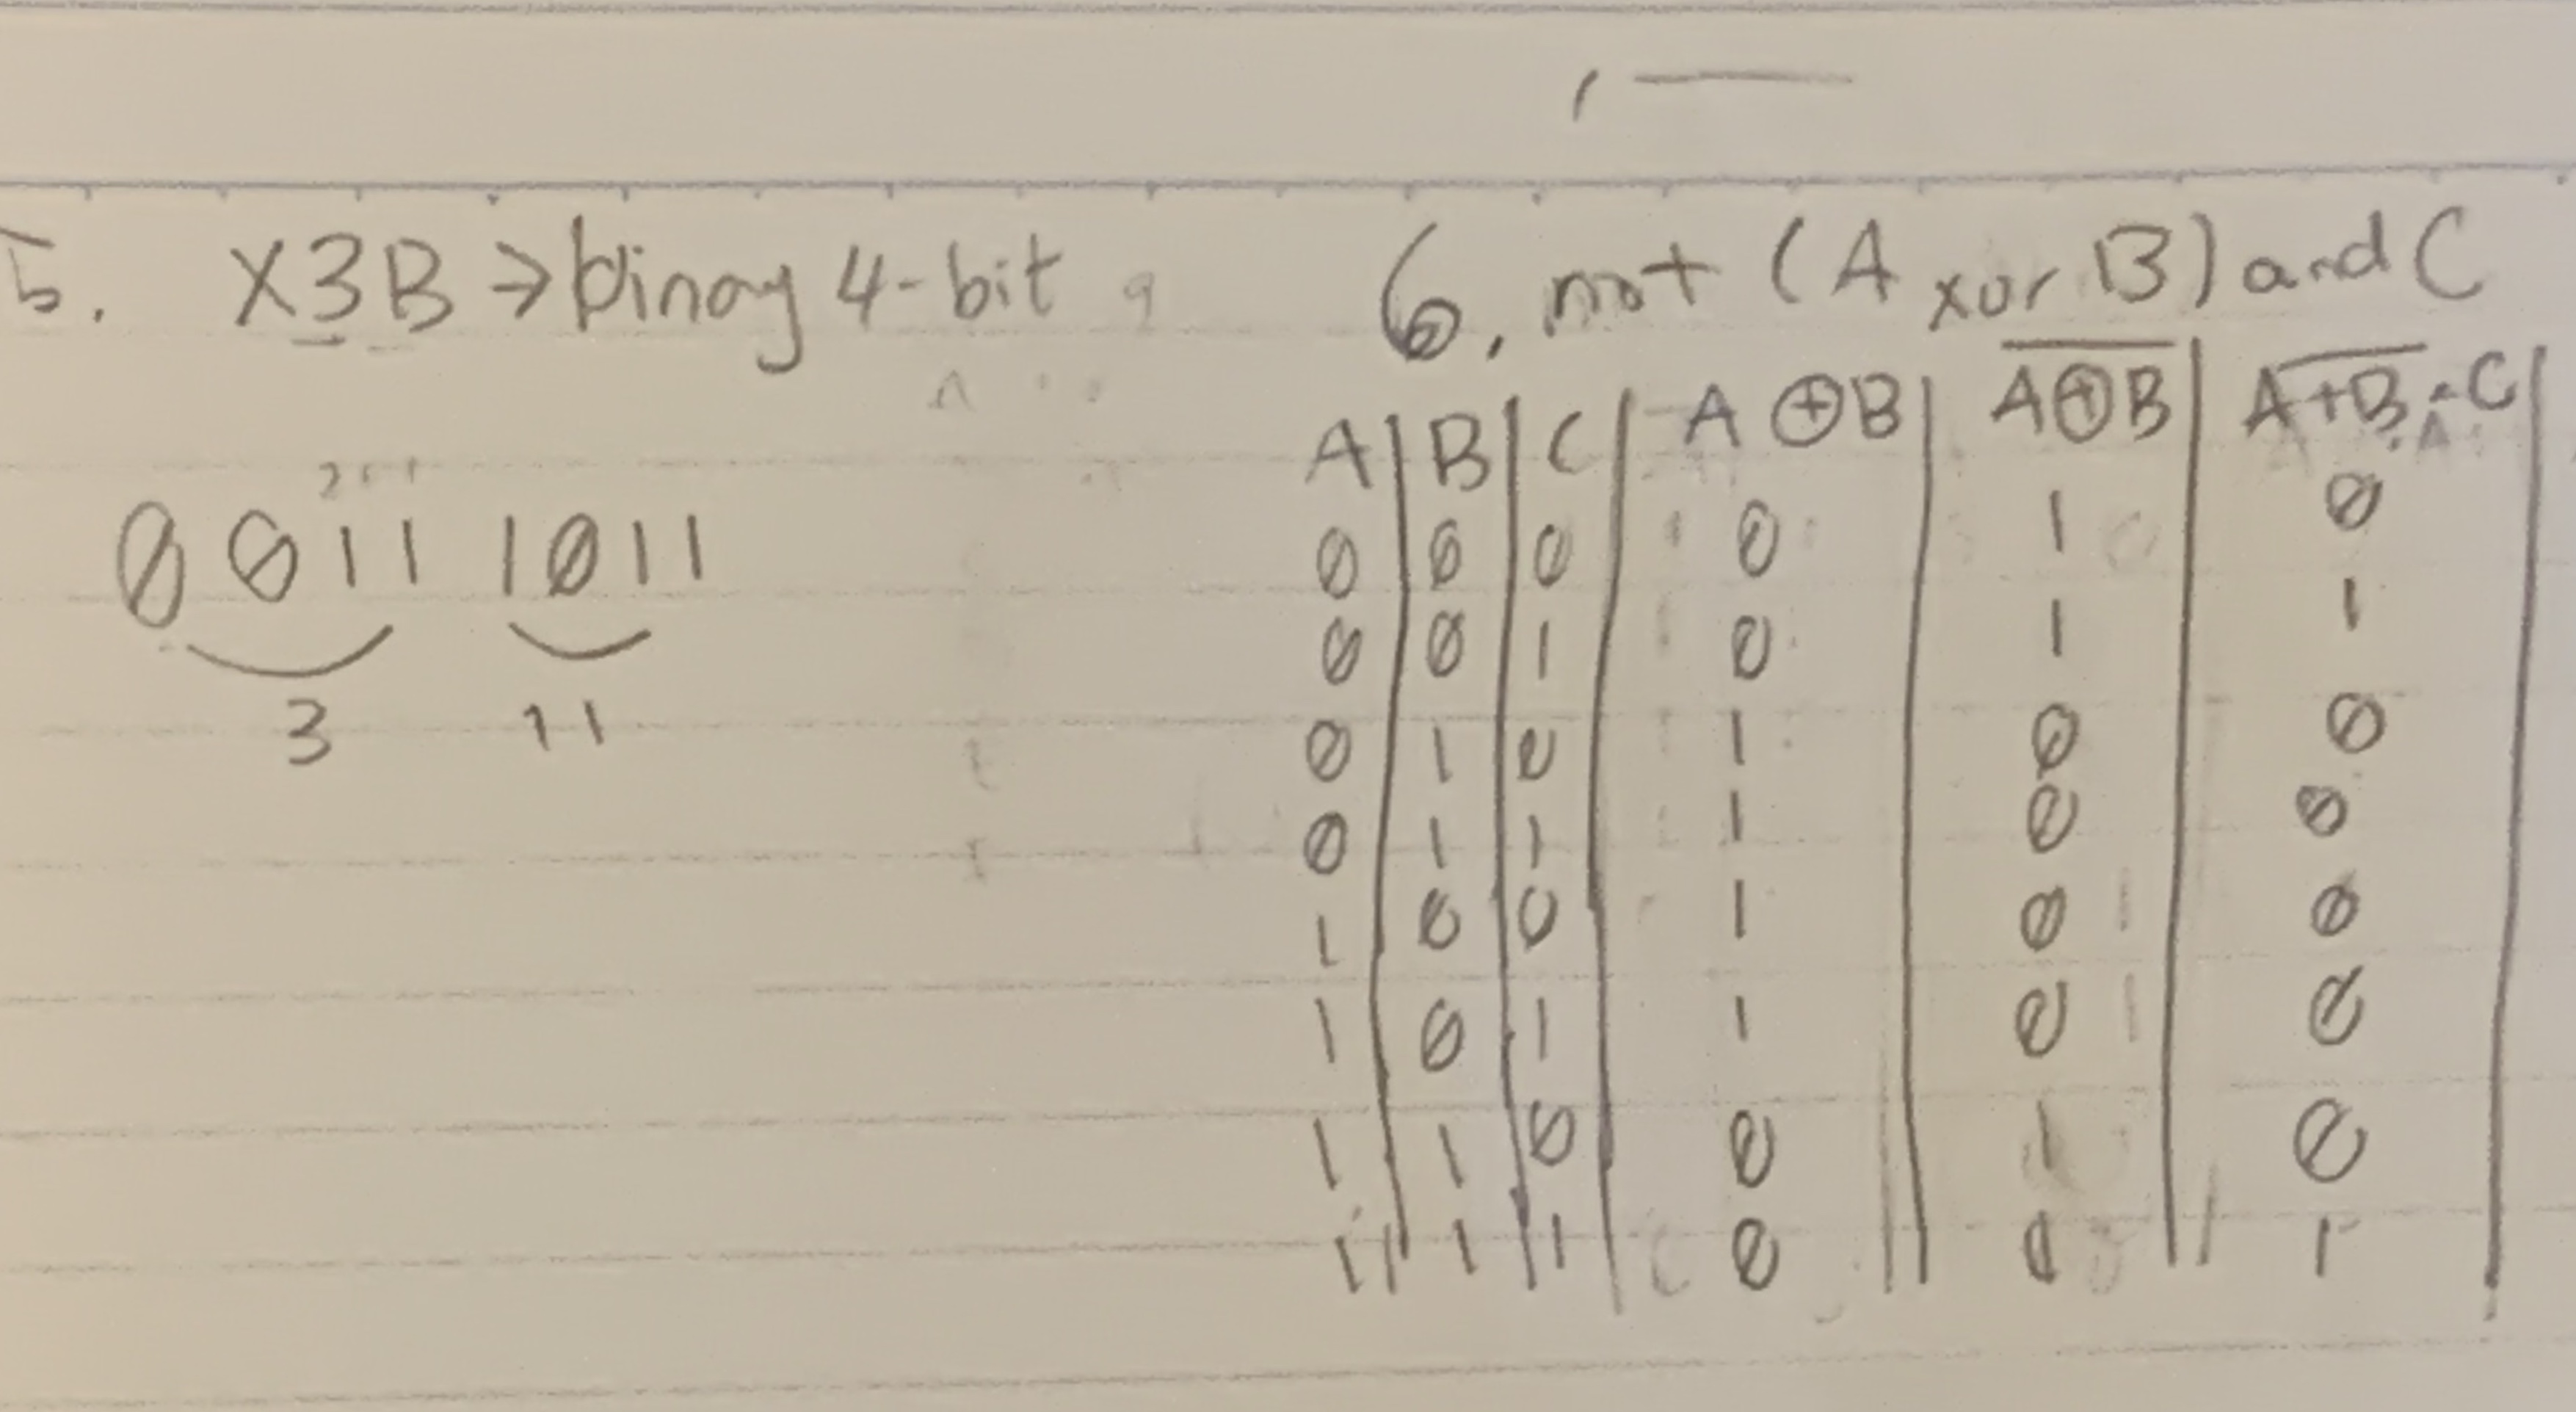 5. X3B → binay 4-bit
0011 1011
3 11
6. not (A xor B) and C
A B C A ⊕ B A̅ ̅⊕̅ ̅B̅ A̅ ̅+̅ ̅B̅ · C
0 0 0 0 1 0
0 0 1 0 1 1
0 1 0 1 0 0
0 1 1 1 0 0
1 0 0 1 0 0
1 0 1 1 0 0
1 1 0 0 1 0
1 1 1 0 1 1